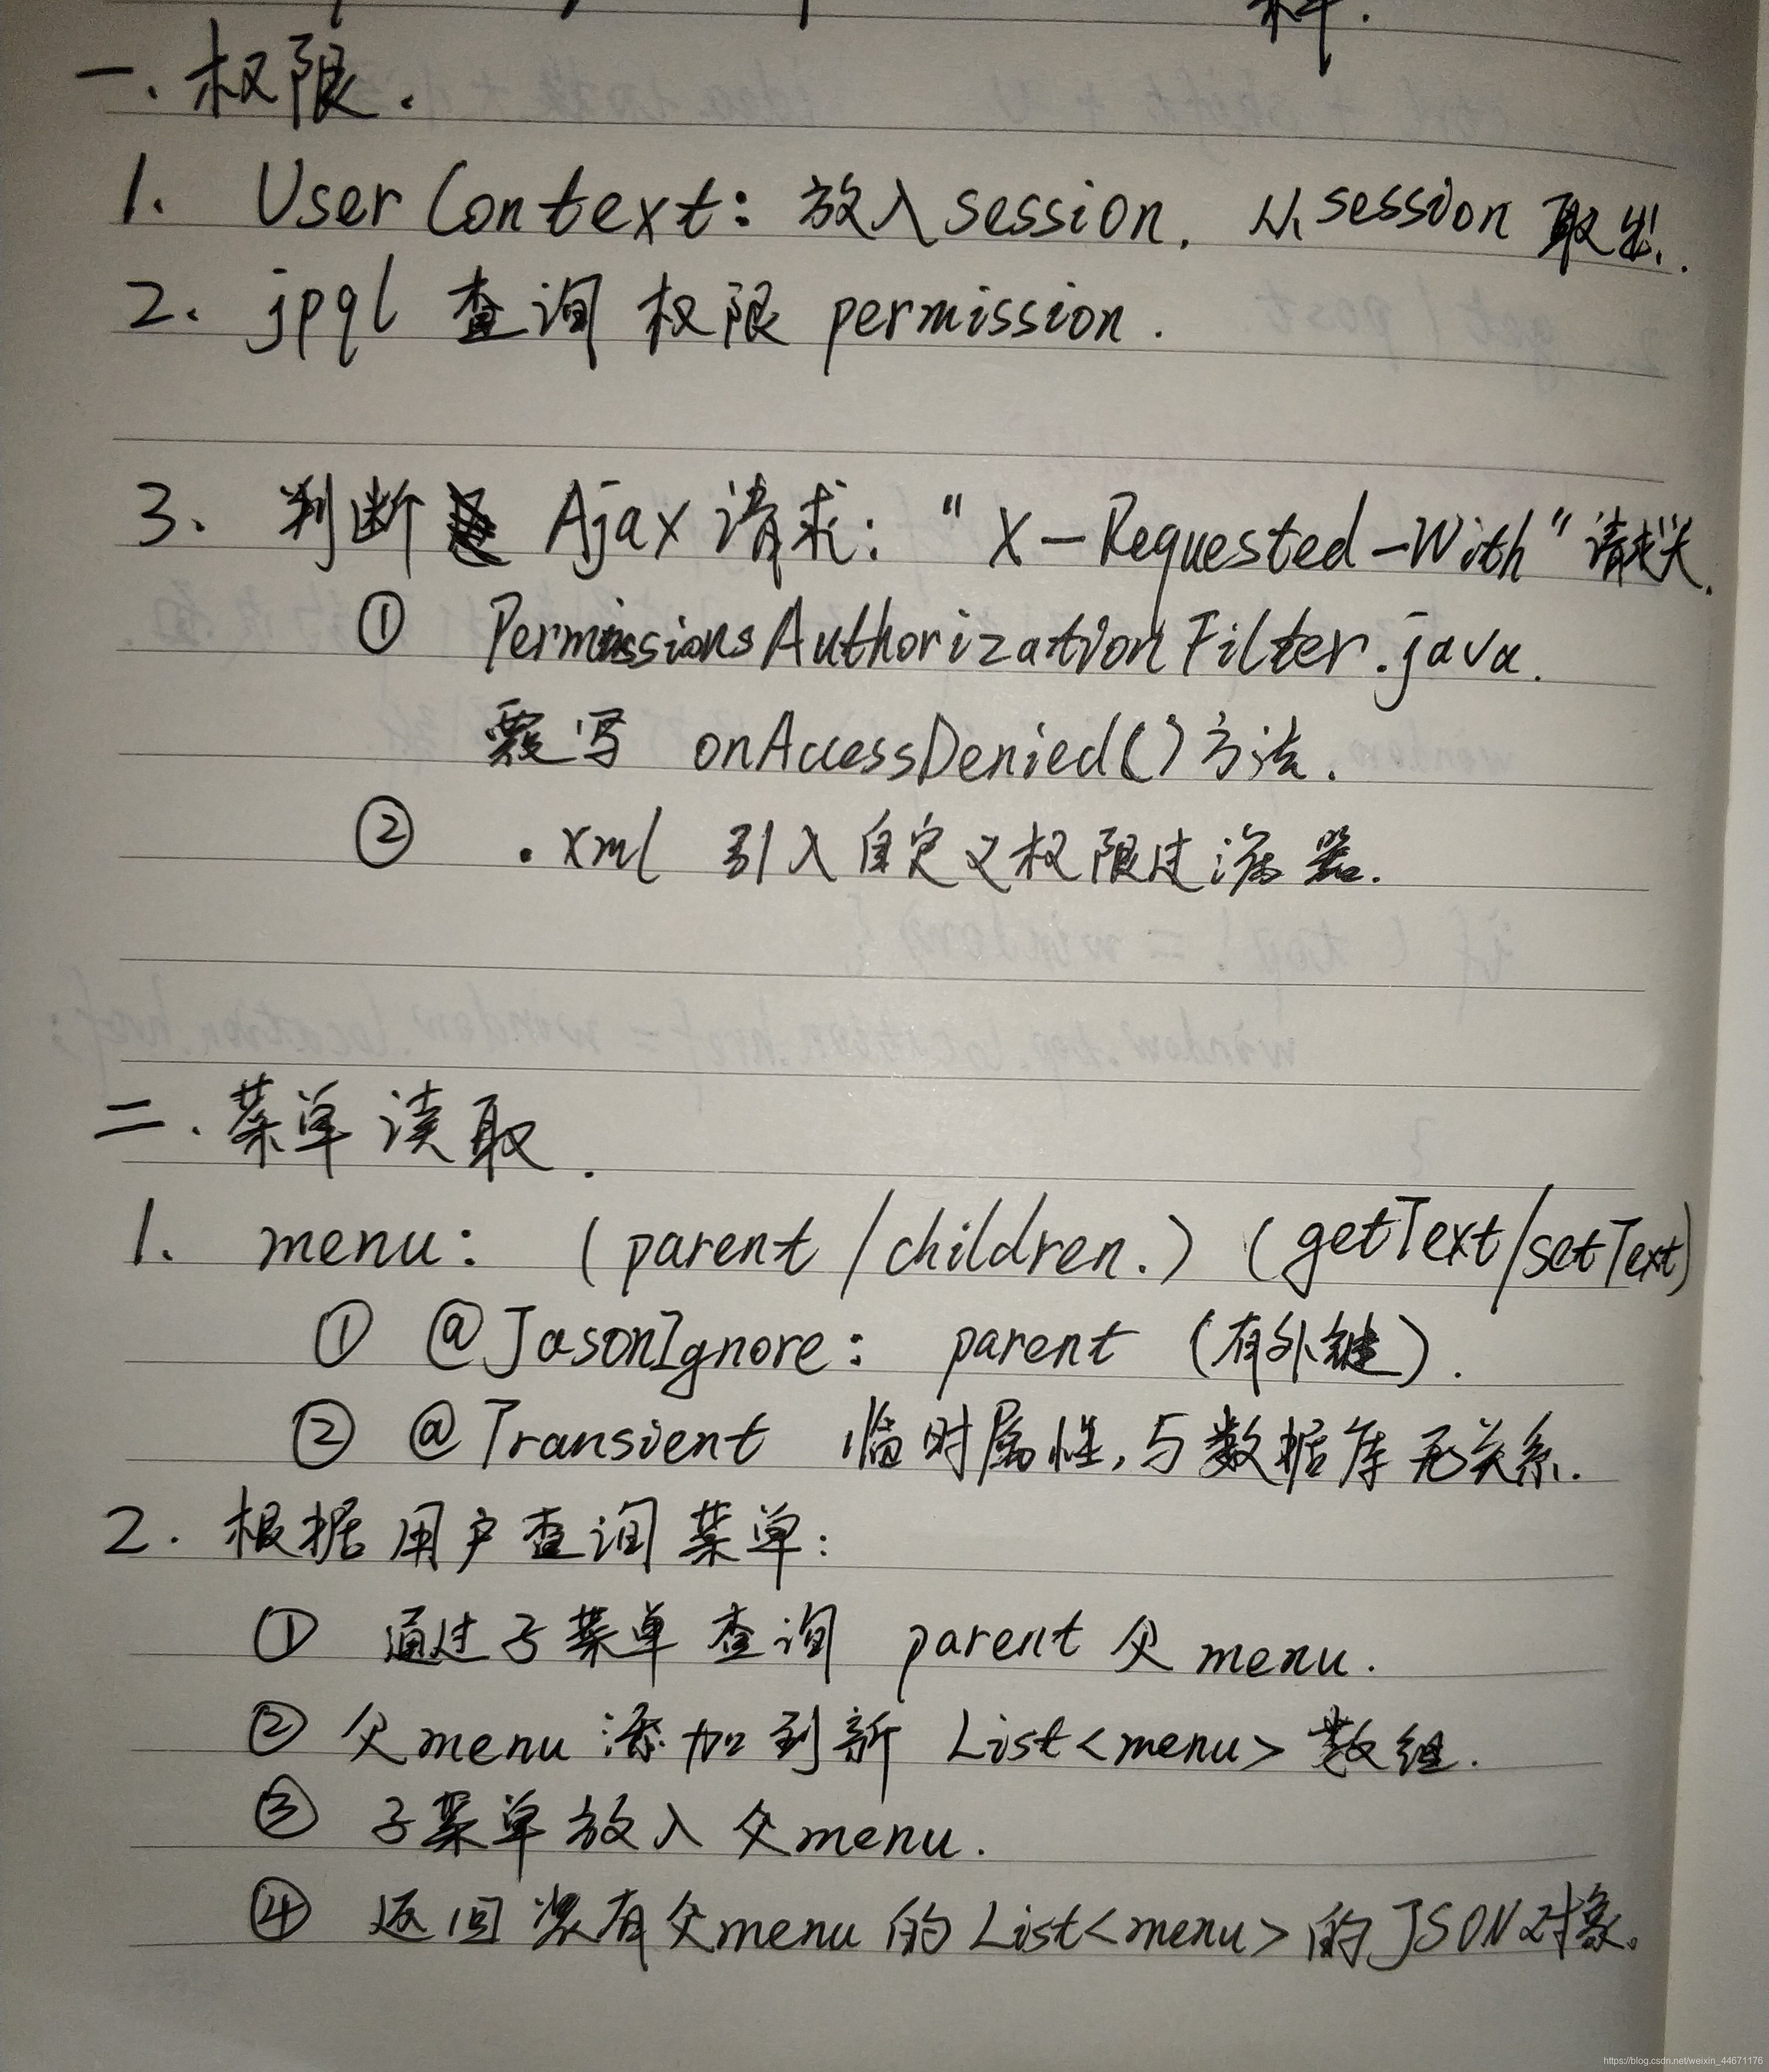 一.权限.
1. UserContext: 放入session. 从session取出.
2. jpql 查询权限 permission.
3. 判断 Ajax请求: "X-Requested-With"请求头.
① PermissionsAuthorizationFilter.java.
覆写 onAccessDenied()方法.
② .xml 引入自定义权限过滤器.
二.菜单读取.
1. menu: (parent/children.) (getText/setText)
① @JasonIgnore: parent (有外键).
② @Transient 临时属性,与数据库无关系.
2. 根据用户查询菜单:
① 通过子菜单查询 parent 父menu.
② 父menu添加到新 List<menu> 数组.
③ 子菜单放入父menu.
④ 返回装有父menu的List<menu>的JSON对象。
https://blog.csdn.net/weixin_44671176